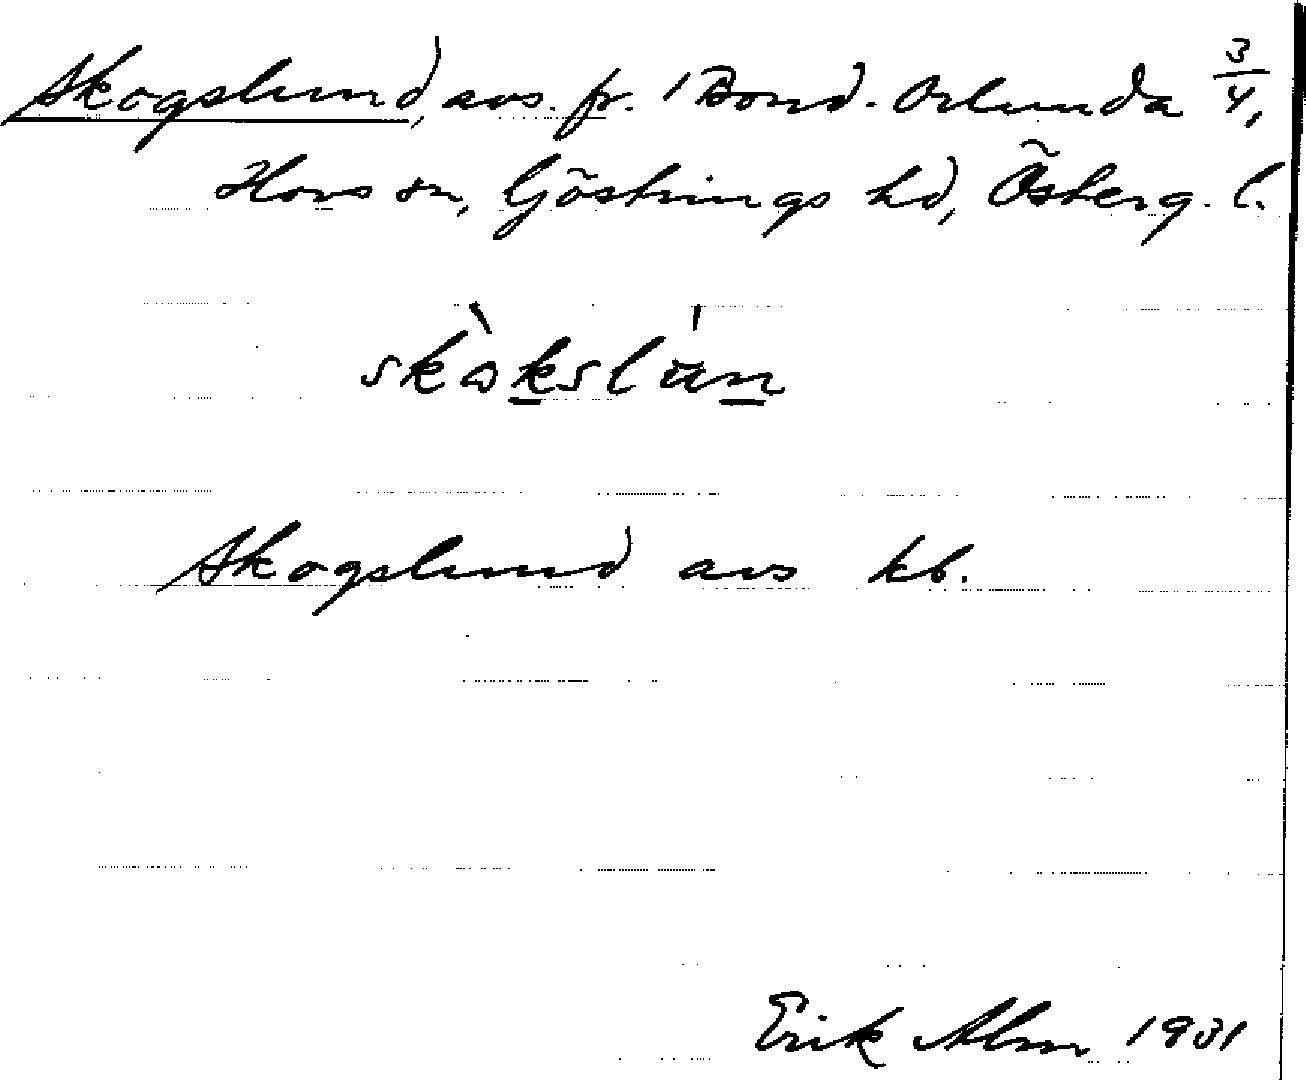 Skogslund, avs. fr. 1 Bond. Orlunda 3/4,
Hovs sn, Göstrings hd, Österg. l.
skògkslún
Skogslund avs kb.
Erik Alm 1931